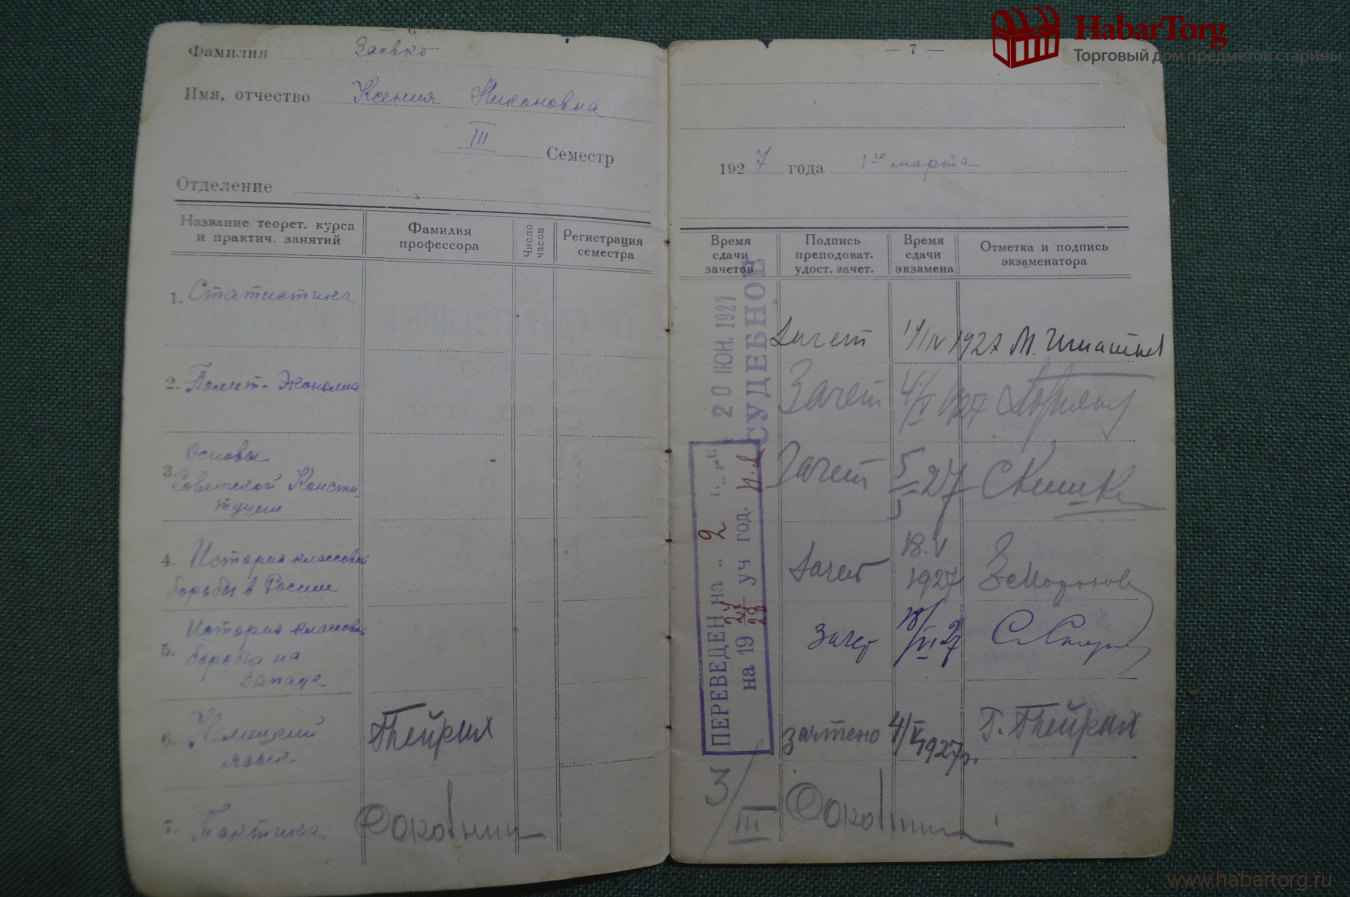 HabarTorg
Торговый дом предметов старины
Фамилия Заевко
Имя, отчество Ксения Никоновна
III Семестр
Отделение
Название теорет. курса и практич. занятий
Фамилия профессора
Число часов
Регистрация семестра
1. Статистика
2. Полит-Экономия
3. Основы
Советской Консти-
туции
4. История классовой
борьбы в России
5. История классовой
борьбы на
Западе
6. Немецкий
язык
7. Тактика
— 7 —
1927 года 1го марта
Время сдачи зачетов
Подпись преподоват. удост. зачет.
Время сдачи экзамена
Отметка и подпись экзаменатора
20 ИЮН. 1927
СУДЕБНОЕ
ПЕРЕВЕДЕН на „ 2
на 19 27/28 уч год.
Зачет 1927 М.
Зачет 4/V 1927
Зачет 5/V 27
Зачет 18.V
1927
Зачет
зачтено 4/V 1927г.
3/III
www.habartorg.ru